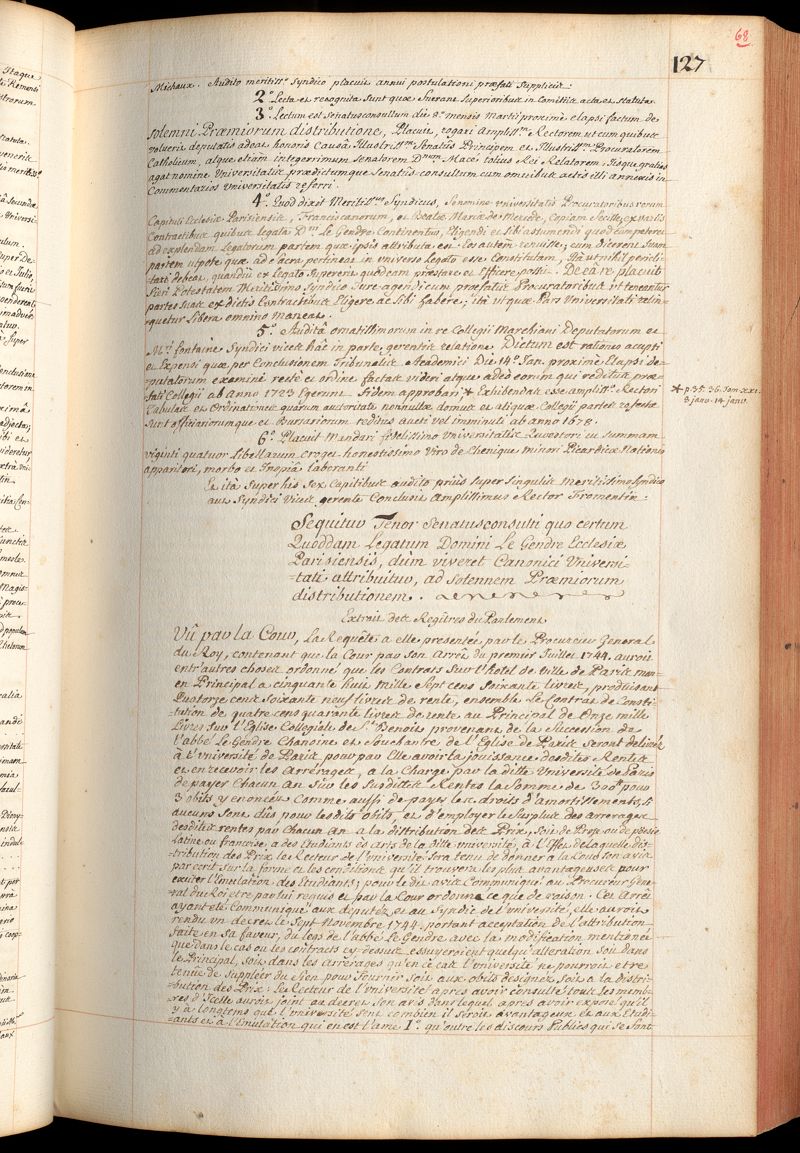 68
127
Michaux. Audito meritissº Syndico placuit annui postulationi præfati Supplicis
2º Lecta et recognita Sunt quæ fuerant Superioribus in Comitiis acta et statuta
3º Lectum est Senatusconsultum die 8ª mensis Martii proximè elapsi factum de
solemni Præmiorum distributione, Placuit, rogari Ampliss.m Rectorem ut cum quibus
voluerit deputatis adeat honoris Causâ Illustriss.m Senatûs Principem et Illustriss.m Procuratorem
Catholicum, atque etiam integerrimum Senatorem D.num Macé totius Rei Relatorem, Iisque gratias
agat nomine Universitatis prædictumque Senatûs consultum cum omnibus actis illi annexis in
Commentarios Universitatis referri.
4º Quod dixit Meritiss.mus Syndicus, Se nomine Universitatis Procuratoribus rerum
Capituli Ecclesiæ Parisiensis, Franciscanorum, et Beatæ Mariæ de Mercede, Copiam fecisse, ex variis
Contractibus quibus legata D.ni Le Gendre Continentur, Eligendi et Sibi assumendi quod competeret
ad explendam Legatorum partem quæ ipsis attributa est. Eos autem renuisse, cum dicerent Suam
partem utpote quæ ad Sacra pertineat in universo Legato esse Constitutam, Ità ut nihil pericli-
tari debeat, quandiù ex legato Supererit quod eam præstare et Efficere possit. De eâ re placuit
fieri Potestatem Meritissimo Syndico Jure agendi cum præfatis Procuratoribus ut teneantur
partes Suas ex dictis Contractibus Eligere ac Sibi habere; ità ut quæ Pars Universitati relin-
quetur Libera omninò maneat.
5º Auditâ ornatissimorum in re Collegii Marchiani Deputatorum et
M.ri fontaine Syndici vices hâc in parte gerentis relatione. Dictum est rationes accepti
et Expensi quæ per Conclusionem Tribunalis Academici Die 14ª Jan. proximè Elapsi de-
putatorum examine rectè et ordine factas videri atque adeò eorum qui reditus præ-
fati Collegii ab anno 1723 Egerunt fidem approbari * Exhibendas esse ampliss.º Rectori
* p. 35. 36. Jam. xxi.
3 janv. 14 janv.
Tabulas et Ordinationes quarum autoritate nonnullæ domus et aliquæ Collegii partes refectæ
Sunt officiariorumque et bursariorum reditus aucti vel imminuti ab anno 1678.
6º Placuit Mandari fidelissimo Universitatis Quæstori ut summam
viginti quatuor Libellarum eroget honestissimo Viro de Chenique minori Picardicæ Nationis
apparitori, morbo et Inopiâ laboranti
Et ità Super his Sex Capitibus audito priùs super Singulis Meritissimo Syndico
aut Syndici Vices gerente Conclusit Amplissimus Rector Fromentin.
Sequitur Tenor Senatusconsulti quo certum
Quoddam Legatum Domini Le Gendre Ecclesiæ
Parisiensis, dùm viveret Canonici Universi-
-tati attribuitur, ad Solennem Præmiorum
distributionem.
Extrait des Regîtres du Parlement
Vû par la Cour, La Requête à elle presentée par le Procureur General
du Roy, contenant que la Cour par Son Arrêt du premier Juillet 1744. auroit
entr'autres choses ordonné que les Contrats Sur l'hôtel de Ville de Paris mon-
en Principal a cinquante huit Mille Sept cens Soixante livres, produisant
Quatorze cens Soixante neuf livres de rente, ensemble Le Contrat de Consti-
tution de quatre cens quarante livres de rente au Principal de Onze mille
Livres sur l'Eglise Collegiale de S.t Benoît provenans de la Succession de
l'abbé Le Gendre Chanoine et Souchantre de l'Eglise de Paris Seront delivrés
à l'Université de Paris pour par Elle avoir la jouissance desdites Rentes
et en recevoir les Arrérages, a la Charge par la ditte Université de Paris
de payer Chacun an sur les Susdittes Rentes la Somme de 300tt pour
3 obits y enoncés Comme aussi de payer les droits d'amortissements, si
aucuns sont dûs pour lesdits obits, et d'employer le Surplus des arrerages
desdites rentes par chacun an a la distribution des Prix, soit de Prose ou de poësie
latine ou françoise, a des Etudiants es arts de la ditte université, à l'Effet de laquelle dis-
tribution des Prix le Recteur de l'Université Sera tenu de donner a la Cour Son avis
par ecrit sur la forme et les conditions qu'il trouvera les plus avantageuses pour
exciter l'Emulation des Etudiants; pour le dit avis Communiqué au Procureur Gene-
ral du Roi etre par lui requis et par la Cour ordonné ce que de raison. Cet Arrêt
ayant eté Communiqué aux députéz et au Syndic de l'université, elle auroit
rendu un decret le Sept Novembre 1744. portant acceptation de l'attribution
faite en Sa faveur, du legs de l'abbé Le Gendre avec la modification mentionnée
que dans le cas ou les contracts cy-dessus essuyeroient quelqu'alteration Soit dans
le Principal, soit dans les arrérages qu'en ce cas l'université ne pourroit etre
tenue de Suppléer du Sien pour fournir Soit aux obits designés, soit a la distri-
bution des Prix: Le Recteur de l'université apres avoir consulté toute les mem-
bres d'Icelle auroit joint au decret Son avis dans lequel apres avoir exposé qu'il
y a longtems que l'université Sent combien il Seroit avantageux et aux Etudi-
-ants et à l'Emulation qui en est l'ame 1º. qu'entre les discours Publics qui Se font